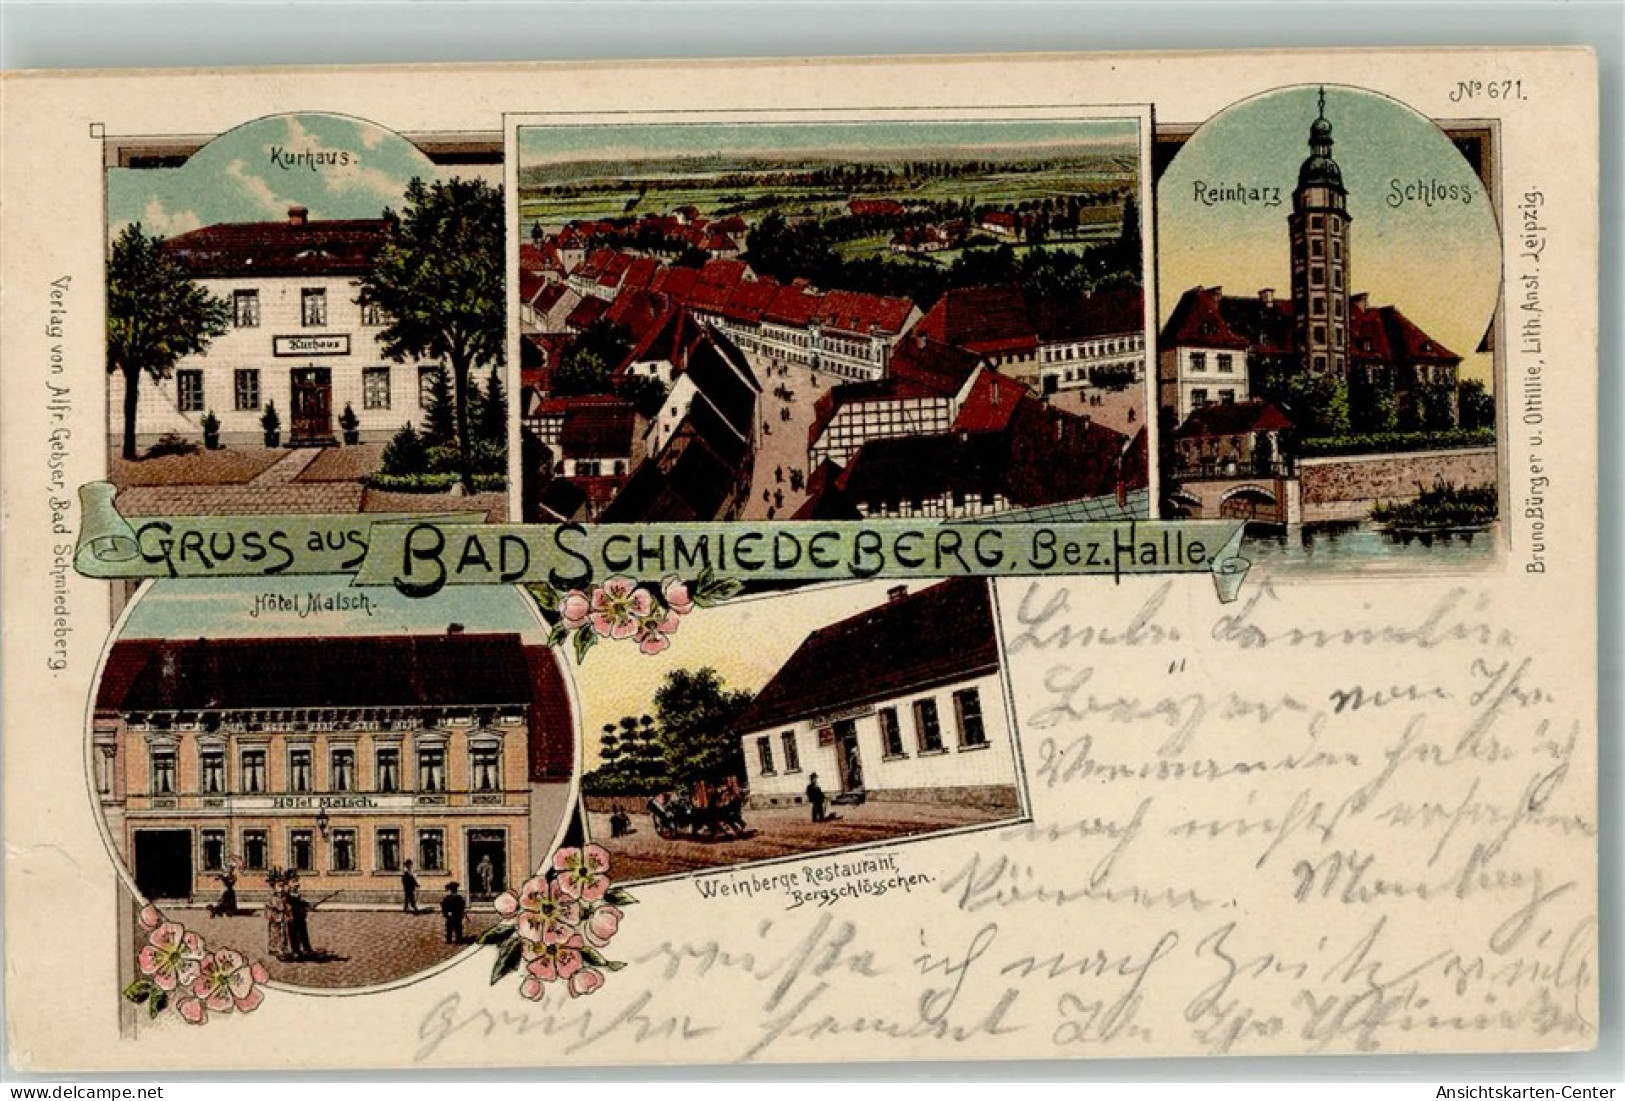 No 671.
Kurhaus.
Kurhaus
Reinharz Schloss.
Verlag von Alfr. Gebser, Bad Schmiedeberg.
Bruno Bürger u. Ottillie, Lith. Anst. Leipzig.
GRUSS aus BAD SCHMIEDEBERG, Bez. Halle.
Hôtel Malsch.
Hôtel Malsch.
Weinberge Restaurant,
Bergschlösschen.
Liebe
von Ihr.
Verwandten habe ich
noch nichts erfahren
können. Montag
reiste ich nach Zeitz, viele
Grüße sendet Ihr
delcampe.net
Ansichtskarten-Center